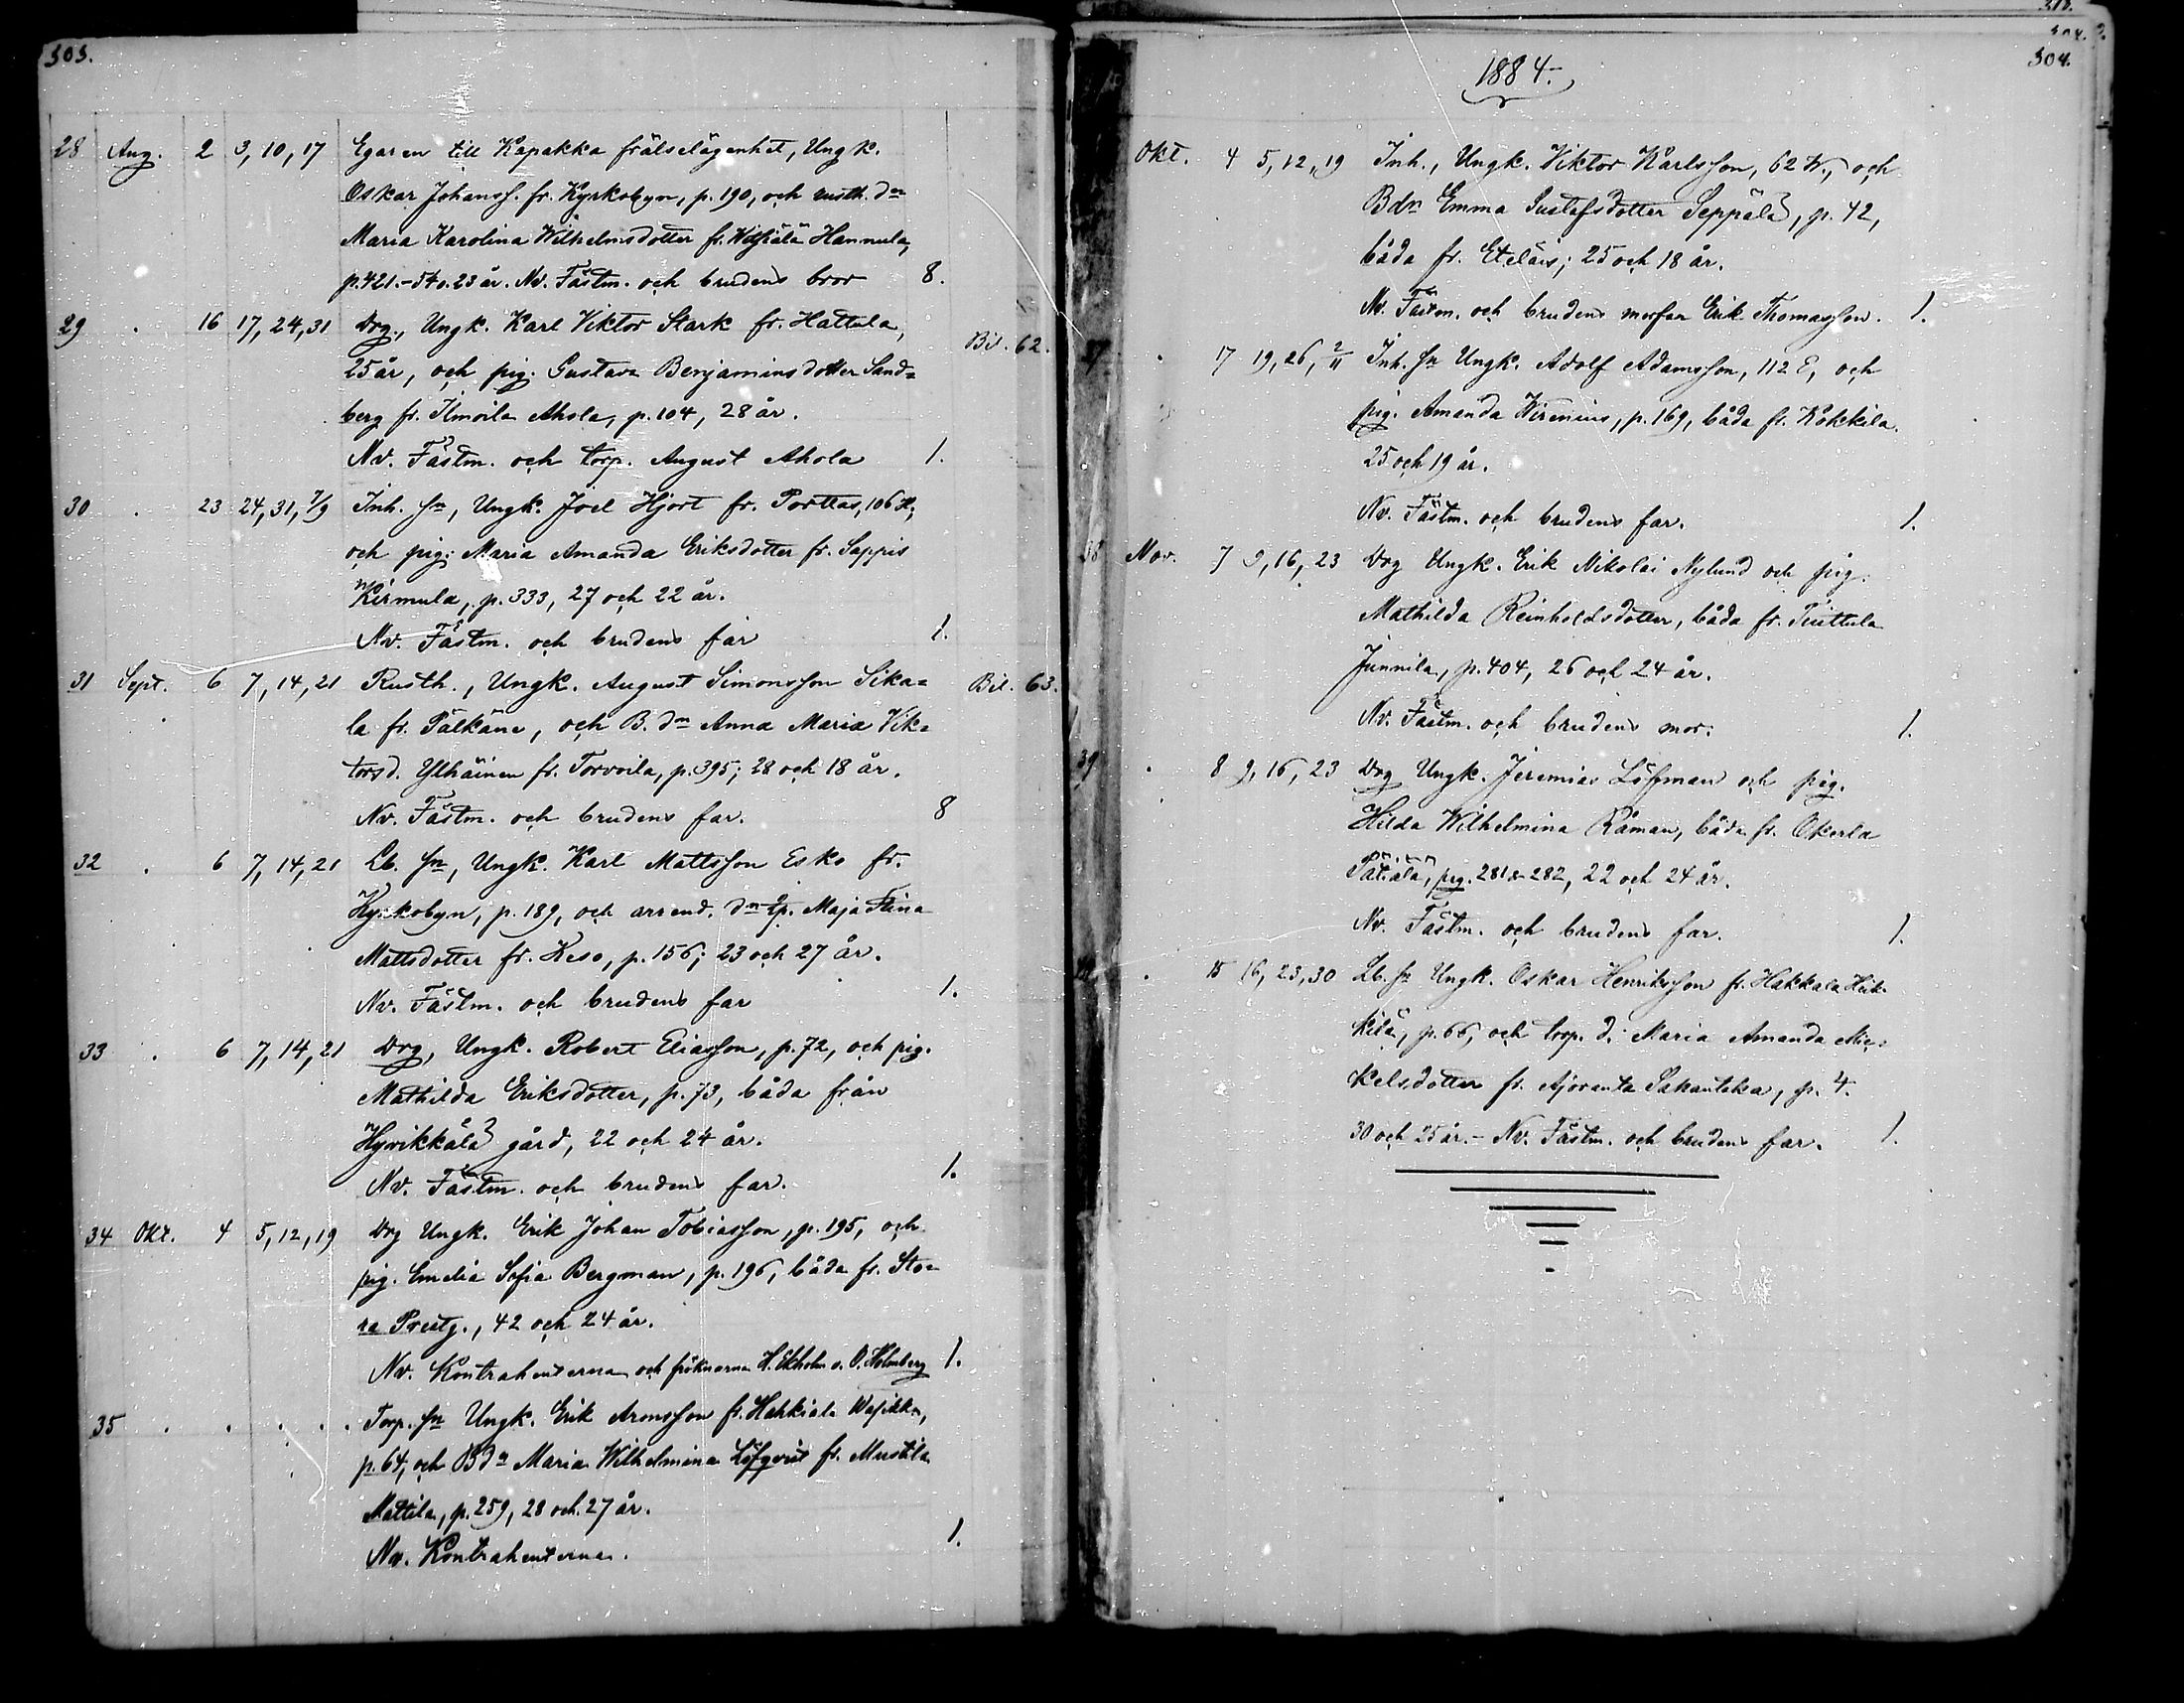 303.
28 Aug. 2 3, 10, 17 Egaren till Kapakka frälselägenhet, Ungk.
Oskar Johanss. fr. Kyrkobyn, p. 190, och rusth. dn
Maria Karolina Wilhelmsdotter fr. Hannula,
p. 421. - 54 o. 23 år. Nv. Fästm. och brudens bror 8.
29 . 16 17, 24, 31 Drg., Ungk. Karl Viktor Stark fr. Hattula, Bil. 62.
25 år, och pig. Gustava Benjaminsdotter Sand=
berg fr. Ilmoila Ahola, p. 104, 28 år.
Nv. Fästm. och torp. August Ahola 1.
30 . 23 24, 31, 7/9 Inh. sn, Ungk. Joel Hjort fr. Porttas, 106 H,
och pig. Maria Amanda Eriksdotter fr. Sappis
Kirmula, p. 333, 27 och 22 år.
Nv. Fästm. och brudens far 1.
31 Sept. 6 7, 14, 21 Rusth., Ungk. August Simonsson Sika= Bil. 63.
la fr. Pälkäne, och B. dn Anna Maria Vik=
torsd. Ylhäinen fr. Torvoila, p. 395; 28 och 18 år.
Nv. Fästm. och brudens far. 8
32 . 6 7, 14, 21 Lb. sn, Ungk. Karl Mattsson Esko fr.
Kyrkobyn, p. 189, och arrend. dn Maja Stina
Mattsdotter fr. Keso, p. 156; 23 och 27 år.
Nv. Fästm. och brudens far 1.
33 . 6 7, 14, 21 Drg, Ungk. Robert Eliasson, p. 72, och pig.
Mathilda Eriksdotter, p. 73, båda från
Hyvikkälä gård, 22 och 24 år.
Nv. Fästm. och brudens far. 1.
34 Okt. 4 5, 12, 19 Drg Ungk. Erik Johan Tobiasson, p. 195, och
pig. Emelia Sofia Bergman, p. 196, båda fr. Sto=
ra Prestg., 42 och 24 år.
Nv. Kontrahenterna och fröknarna H. Ekholm o. O. Holmberg 1.
35 . . . . . Torp. sn Ungk. Erik Aronsson fr. Hahkiala
p. 64, och Bdn Maria Wilhelmina Löfqvist fr. Mustila
Mattila, p. 259, 28 och 27 år.
Nv. Kontrahenterna. 1.
304.
1884.
Okt. 4 5, 12, 19 Inh., Ungk. Viktor Karlsson, 62 och
Bdn Emma Gustafsdotter Seppälä, p. 42,
båda fr. Eteläis; 25 och 18 år.
Nv. Fästm. och brudens morfar Erik Thomasson. 1.
37 . 17 19, 26, 2/11 Inh. sn Ungk. Adolf Adamsson, 112 E, och
pig. Amanda Wirenius, p. 169, båda fr. Kokkila.
25 och 19 år.
Nv. Fästm. och brudens far. 1.
38 Nov. 7 9, 16, 23 Drg Ungk. Erik Nikolai Nylund och pig.
Mathilda Reinholdsdotter, båda fr. Tiuttula
Junnila, p. 404, 26 och 24 år.
Nv. Fästm. och brudens mor. 1.
39 . 8 9, 16, 23 Drg Ungk. Jeremias Löfman och pig.
Hilda Wilhelmina Råman, båda fr. Okerla
Pätiälä, pag. 281 & 282, 22 och 24 år.
Nv. Fästm. och brudens far. 1.
. 15 16, 23, 30 Lb. sn Ungk. Oskar Henriksson fr. Hakkala Heik-
kilä, p. 66, och torp. d. Maria Amanda Mic=
kelsdotter fr. Ajoranta Sakantaka, p. 4.
30 och 25 år. - Nv. Fästm. och brudens far. 1.